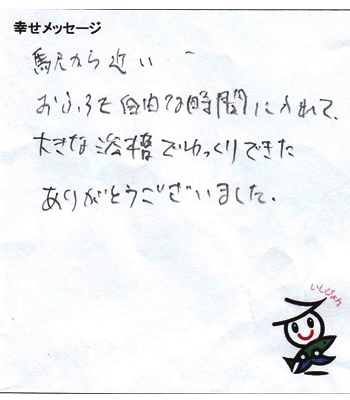 幸せメッセージ
駅から近い
おふろを自由な時間に入れて、
大きな浴槽でゆっくりできた
ありがとうございました。
いしぴょん